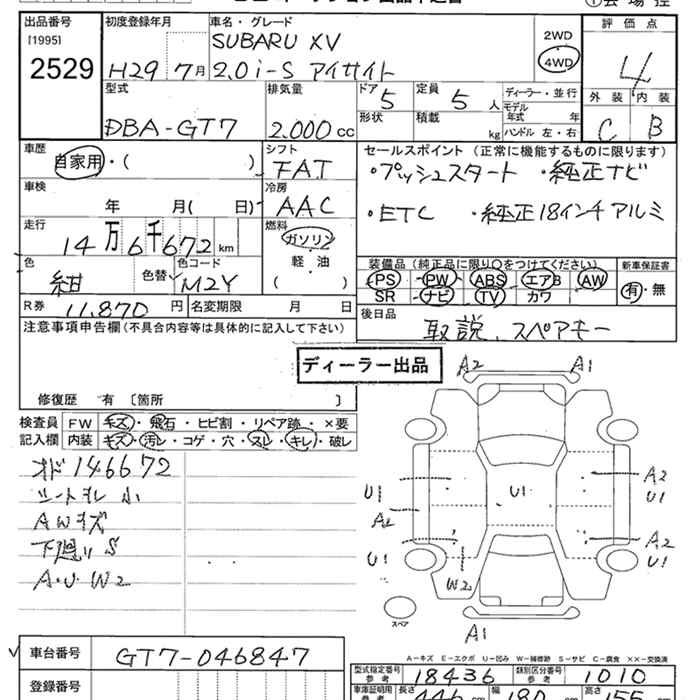 出品番号 初度登録年月 車名・グレード 評価点
[1995] SUBARU XV 2WD
2529 H29年7月 2.0i-S アイサイト 4WD 4
型式 排気量 ドア 定員 ディーラー・並行 外装 内装
DBA-GT7 2.000cc 5 5人 モデル年式 年 C B
形状 積載 kg ハンドル 左・右
車歴 シフト セールスポイント (正常に機能するものに限ります)
自家用・( ) FAT ・プッシュスタート ・純正ナビ
車検 冷房
年 月( 日) AAC ・ETC ・純正18インチアルミ
走行 燃料
14万6千672km ガソリン
色 色替 色コード 軽・油 装備品(純正品に限り○をつけてください) 新車保証書
紺 M2Y ( ) PS PW ABS エアB AW 有・無
SR ナビ TV カワ
R券 11,870円 名変期限 月 日 後日品
注意事項申告欄(不具合内容等は具体的に記入して下さい) 取説、スペアキー
ディーラー出品
修復歴 有 〔箇所 〕
A2 A1
検査員 FW キズ・飛石・ヒビ割・リペア跡・×要
記入欄 内装 キズ・汚レ・コゲ・穴・スレ・キレ・破レ
オド146672
シートキレ小
AWキズ
下廻りS
A.U.W2
U1 U1 A2
U1
A2
A2
U1 U1
W2
スペア
A1
A-キズ E-エクボ U-凹み W-補修跡 S-サビ C-腐食 XX-交換済
車台番号 GT7-046847
型式指定番号 参考 18436 類別区分番号 参考 1010
登録番号
車庫証明用 参考 長さ 446 cm 幅 180 cm 高さ 155 cm